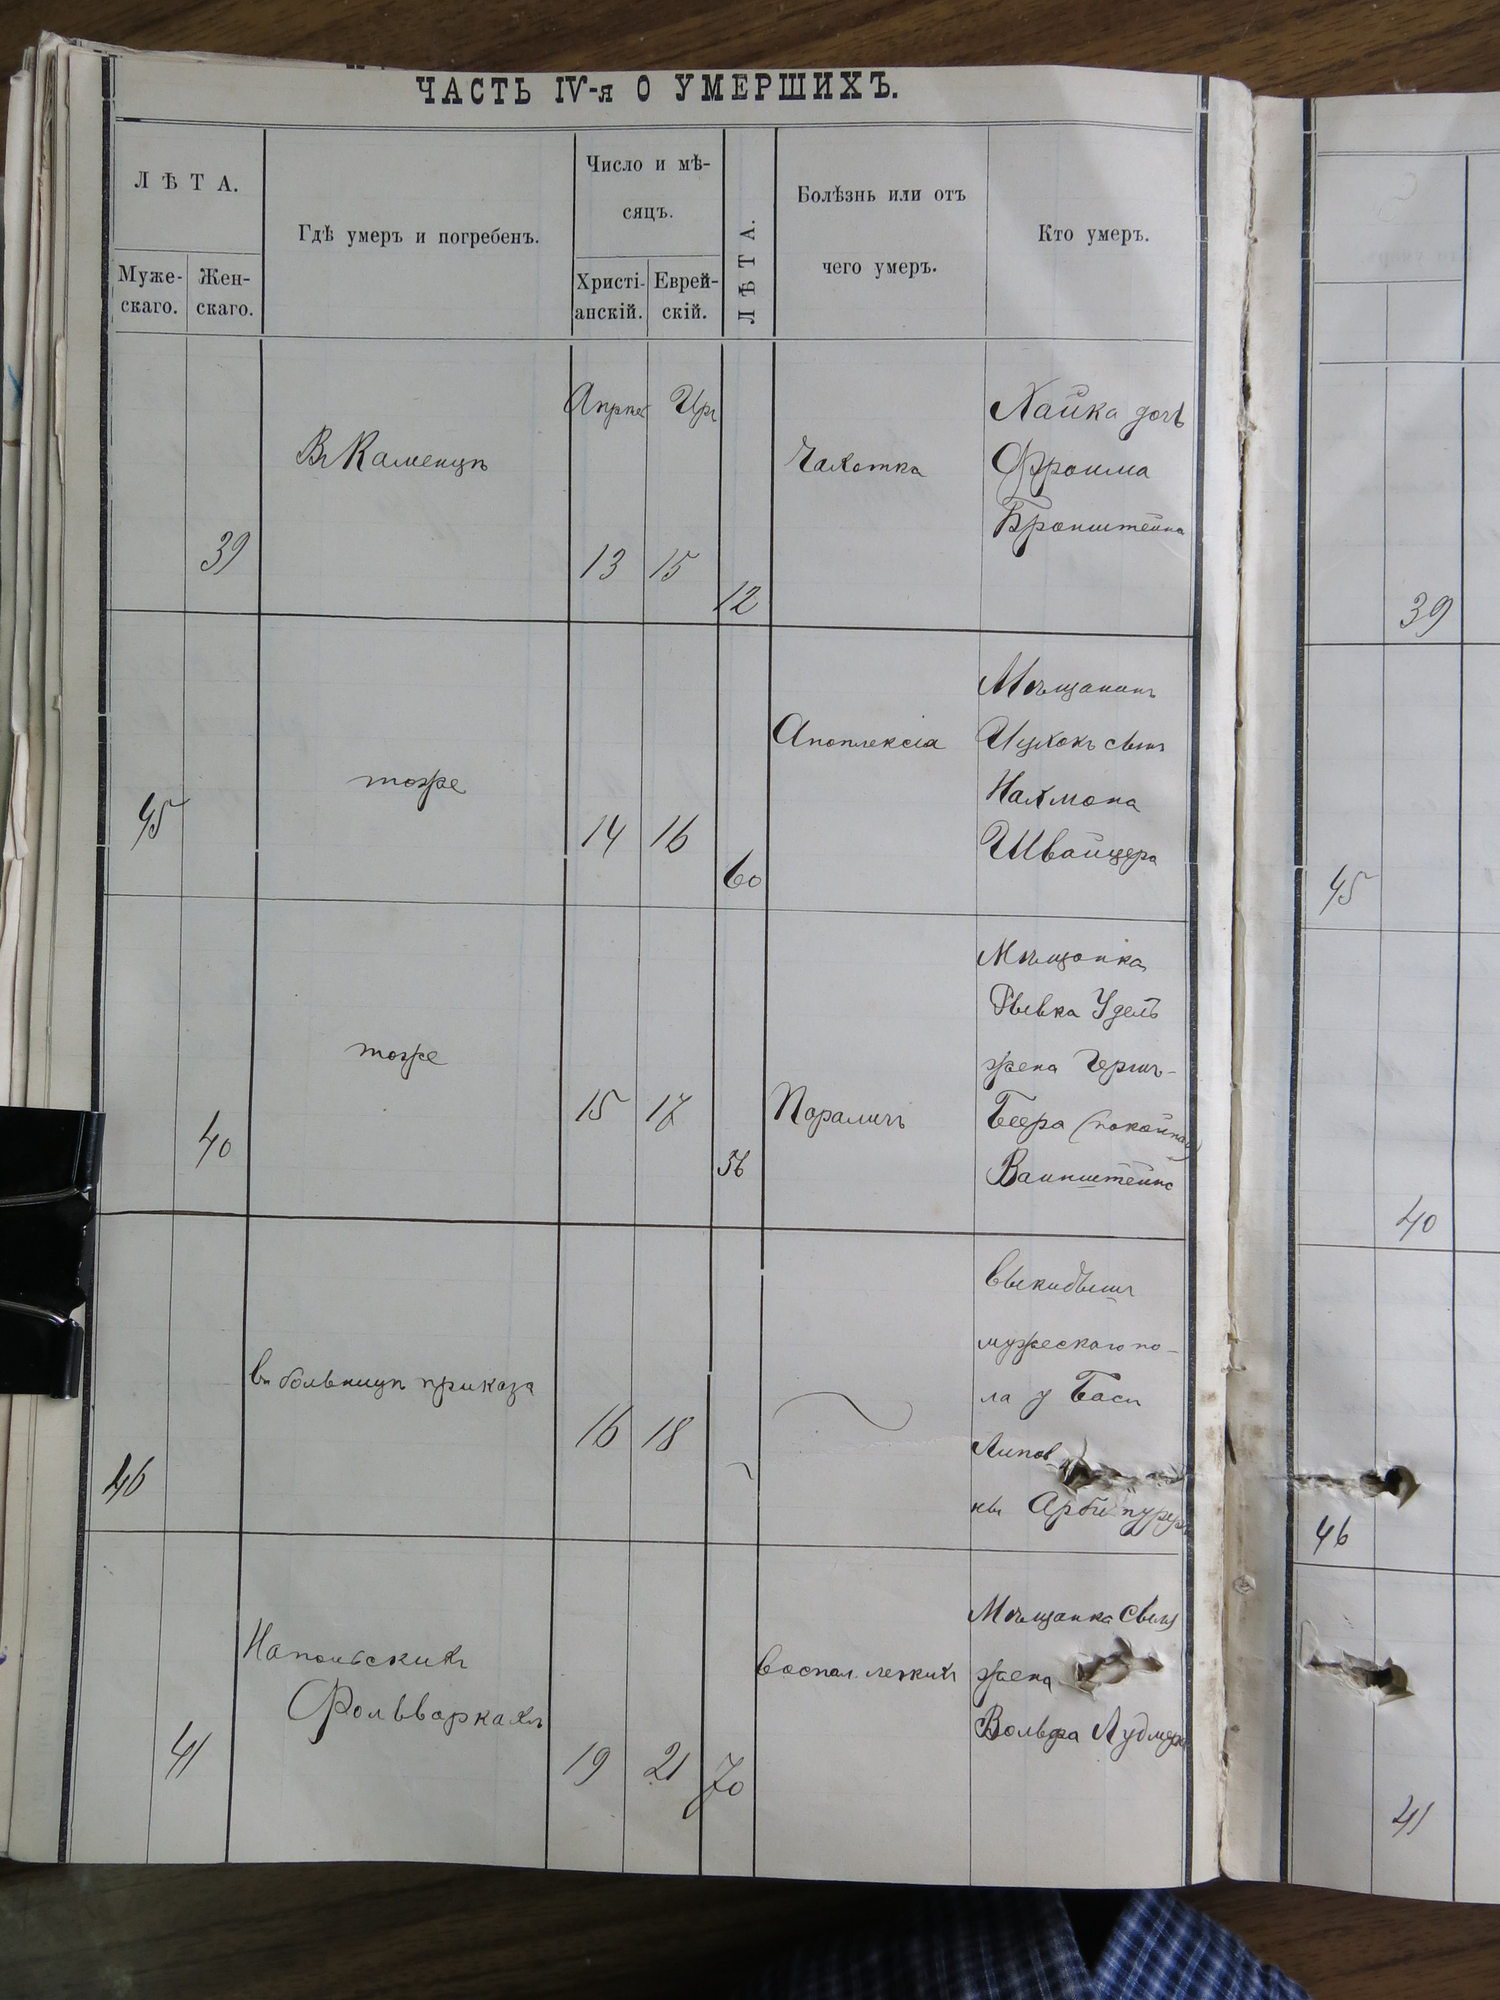 ЧАСТЬ IV-я О УМЕРШИХЪ.
ЛѢТА.
Муже-
скаго.
Жен-
скаго.
Гдѣ умеръ и погребенъ.
Число и мѣ-
сяцъ.
Христі-
анскій.
Еврей-
скій.
ЛѢТА.
Болѣзнь или отъ
чего умеръ.
Кто умеръ.
39
Въ Каменцѣ
13
15
12
Чахотка
Хайка дочь
Фроима
Бронштейна
39
45
тоже
14
16
60
Апоплексія
Мѣщанинъ
Ицхокъ сынъ
Нахмона
Швайцера
45
40
тоже
15
17
56
Параличъ
Мѣщанка
Рывка Удель
жена Герша-
Беера (покойная)
Ваинштейна
40
46
въ больницѣ приказа
16
18
выкидышъ
мужескаго по-
ла у Баси
46
41
Напольскихъ
Фольваркахъ
19
21
70
воспал. легкихъ
Мѣщанка
жена
Вольфа
41